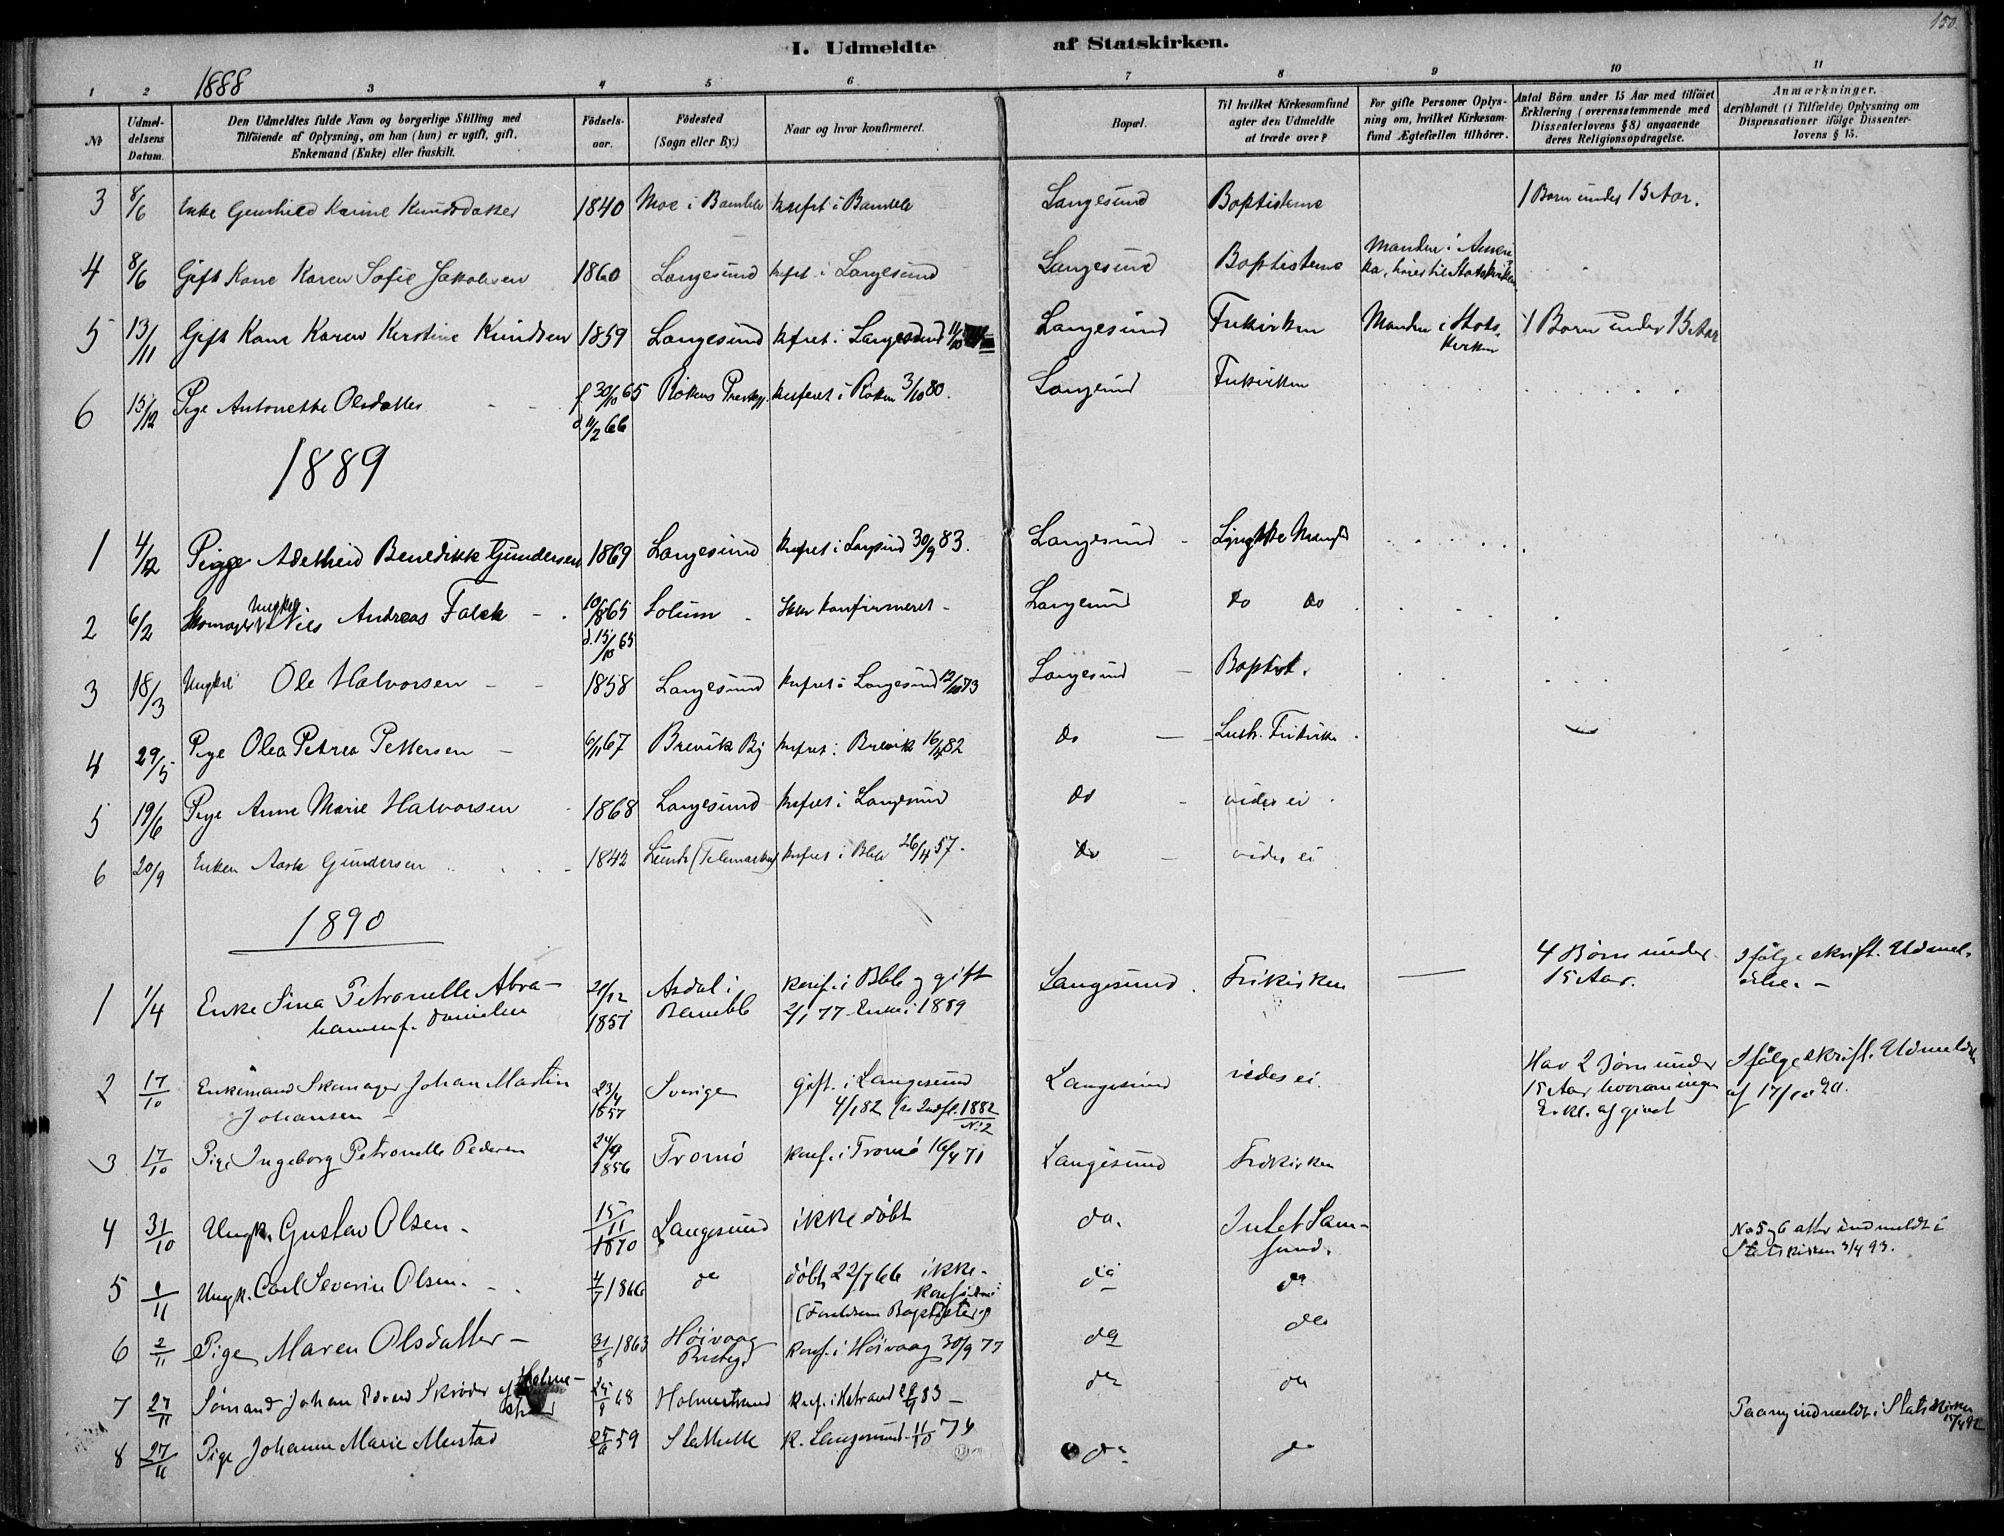 150.
I. Udmeldte af Statskirken.
1888
1 2 3 4 5 6 7 8 9 10 11
№
Udmeldelsens Datum.
Den Udmeldtes fulde Navn og borgerlige Stilling med
Tilföiende af Oplysning, om han (hun) er ugift, gift,
Enkemand (Enke) eller fraskilt.
Födselsaar.
Födested
(Sogn eller By.)
Naar og hvor konfirmeret.
Bopæl.
Til hvilket Kirkesamfund
agter den Udmeldte
at træde over?
For gifte Personer Oplysning om, hvilket Kirkesamfund Ægtefællen tilhörer.
Antal Börn under 15 Aar med tilföiet
Erklæring (overensstemmende med
Dissenterlovens § 8) angaaende
deres Religionsopdragelse.
Anmærkninger,
deriblandt (i Tilfælde) Oplysning om
Dispensationer ifölge Dissenterlovens § 15.
3 8/6 Enke Gunhild Karine Knudsdatter 1840 Moe i Bamble knfret i Bamble Langesund Baptisterne 1 Barn under 15 Aar.
4 8/6 Gift Kone Karen Sofie Jakobsen 1860 Langesund knfret i Langesund Langesund Baptisterne Manden i Amerika, hører til Statskirken
5 13/11 Gift Kone Karen Kirstine Knudsen 1859 Langesund knfret i Langesund 11/10 Langesund Frikirken Manden i Statskirken 1 Barn under 15 Aar
6 15/12 Pige Antonette Olsdatter f. 30/10 65 d. 11/2 66 Rökens Prestgj. knfret i Röken 3/10 80. Langesund Frikirken
1889
1 4/2 Pige Adelheid Benedikte Gundersen 1869 Langesund knfret i Langesund 30/9 83. Langesund
2 6/2 Skomager Ungkarl Nils Andreas Falck 10/8 65 d. 15/10 65 Solum Ikke konfirmeret Langesund do do
3 18/3 Ungkrl Ole Halvorsen 1858 Langesund knfret i Langesund 12/10 73 Langesund Baptist.
4 29/5 Pige Olea Petrea Pettersen 6/1 67 Brevik By knfret i Brevik 16/4 82 do Luth. Frikirke
5 19/6 Pige Anne Marie Halvorsen 1868 Langesund knfret i Langesund do vides ei
6 20/9 Enken Aaste Gundersen 1842 Lunde (Telemarken) knfret i Bble 26/4 57. do vides ei
1890
1 1/4 Enke Sina Petronelle Abrahamsen f. Danielsen 21/12 1851 Asdal i Bamble konf. i Bble og gift 2/1 77 Enke i 1889 Langesund Frikirken 4 Børn under 15 Aar. Ifølge skrift. Udmeldelse.
2 17/10 Enkemand Skomager Johan Martin Johansen 23/4 1857 Sverige gift i Langesund 4/1 82 (se Indfl. 1882 No 2 Langesund vides ei. Har 2 Børn under 15 Aar hvorom ingen Erkl. afgivet Ifølge skriftl. Udmeldelse af 17/10 90.
3 17/10 Pige Ingeborg Petronelle Pedersen 24/9 1856 Tromö konf. i Tromö 16/4 71 Langesund Frikirken
4 31/10 Ungk. Gustav Olsen 15/11 1870 Langesund ikke døbt do. Intet Samfund. No 5 og 6 atter indmeldt i Statskirken 3/4 93.
5 1/11 Ungk. Carl Severin Olsen 4/7 1866 do døbt 22/7 66 ikke konfirmeret (Forældrene Baptister) do do
6 2/11 Pige Maren Olsdatter 31/8 1863 Höivaag Prstegj konf. i Höivaag 30/9 77 do do
7 27/11 Sømand Johan Edvard Skrøder af Holmestrand 68 Holmestrand konf. i Hstrand 83 do do Paany indmeldt i Statskirken 17/4 92
8 27/11 Pige Johanne Marie Mustad 59 Stathelle k. Langesund 11/10 74 do do